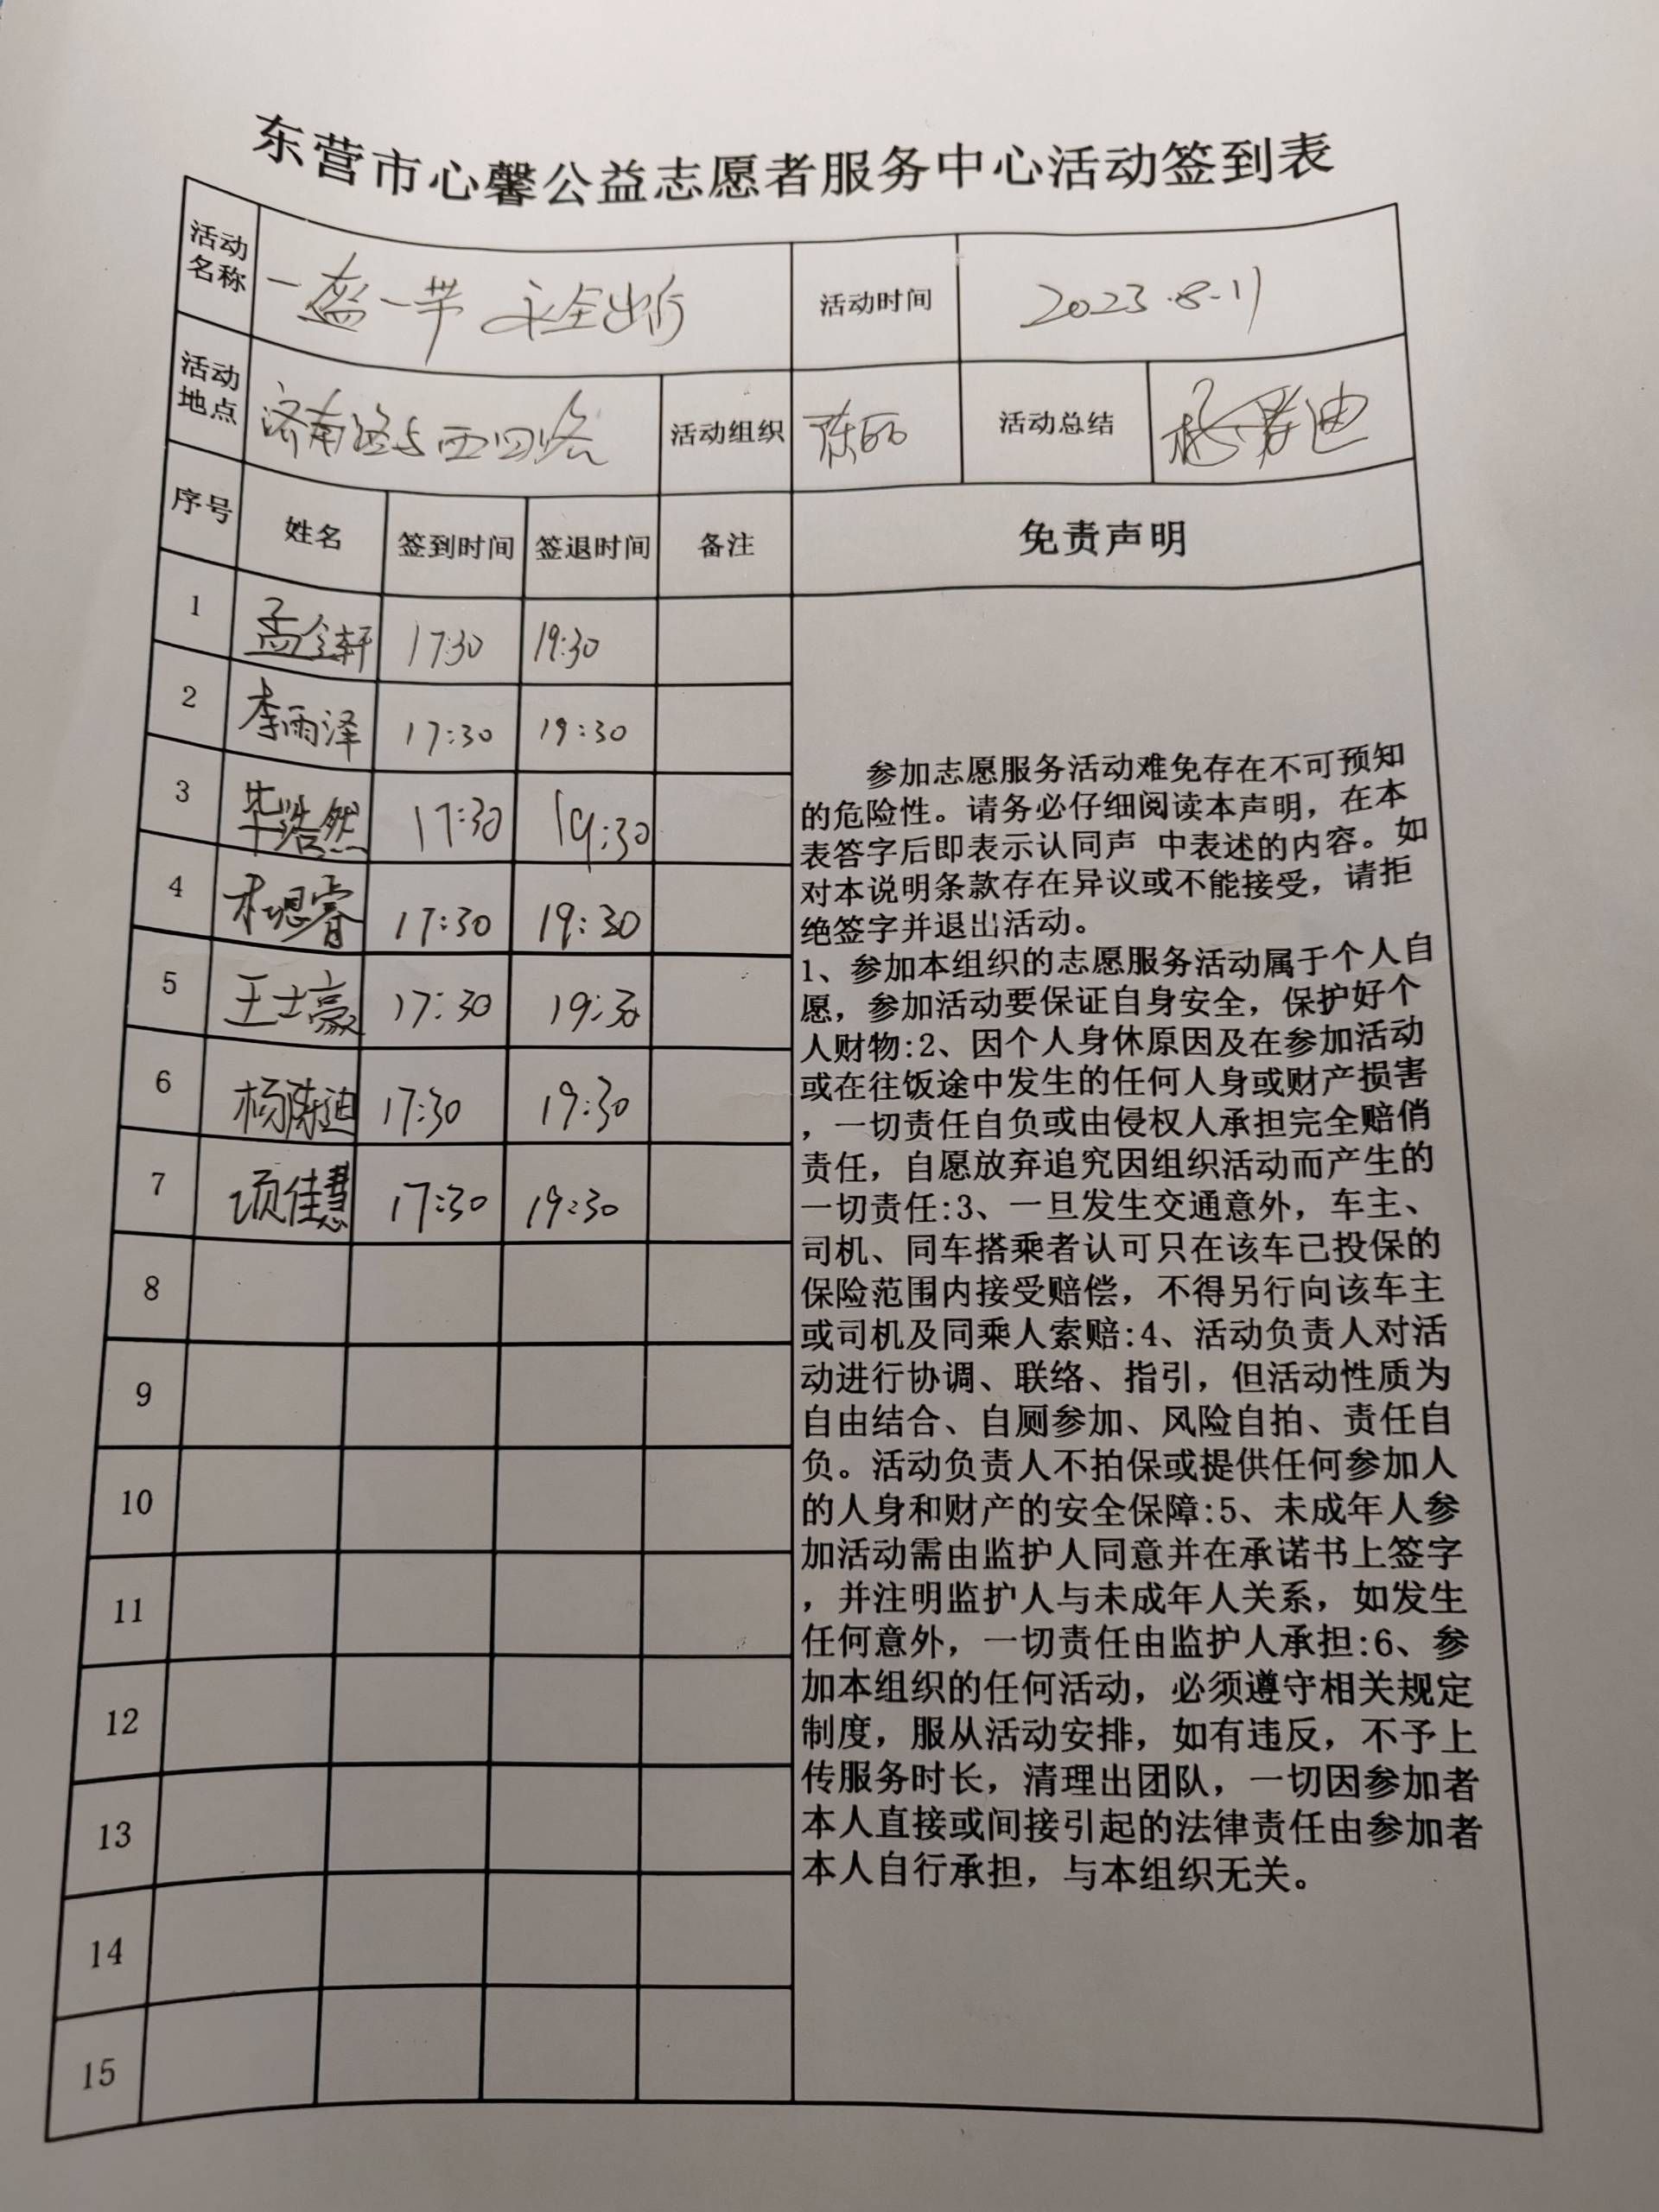 东营市心馨公益志愿者服务中心活动签到表
活动名称 一盔一带 安全出行 活动时间 2023.8.11
活动地点 济南路与西四路 活动组织 陈丽 活动总结
序号 姓名 签到时间 签退时间 备注 免责声明
1 孟令轩 17:30 19:30
2 李雨泽 17:30 19:30
3 毕浩然 17:30 19:30
4 17:30 19:30
5 王士豪 17:30 19:30
6 17:30 19:30
7 项佳慧 17:30 19:30
8
9
10
11
12
13
14
15
参加志愿服务活动难免存在不可预知
的危险性。请务必仔细阅读本声明，在本
表答字后即表示认同声 中表述的内容。如
对本说明条款存在异议或不能接受，请拒
绝签字并退出活动。
1、参加本组织的志愿服务活动属于个人自
愿，参加活动要保证自身安全，保护好个
人财物:2、因个人身休原因及在参加活动
或在往饭途中发生的任何人身或财产损害
，一切责任自负或由侵权人承担完全赔俏
责任，自愿放弃追究因组织活动而产生的
一切责任:3、一旦发生交通意外，车主、
司机、同车搭乘者认可只在该车己投保的
保险范围内接受赔偿，不得另行向该车主
或司机及同乘人索赔:4、活动负责人对活
动进行协调、联络、指引，但活动性质为
自由结合、自厕参加、风险自拍、责任自
负。活动负责人不拍保或提供任何参加人
的人身和财产的安全保障:5、未成年人参
加活动需由监护人同意并在承诺书上签字
，并注明监护人与未成年人关系，如发生
任何意外，一切责任由监护人承担:6、参
加本组织的任何活动，必须遵守相关规定
制度，服从活动安排，如有违反，不予上
传服务时长，清理出团队，一切因参加者
本人直接或间接引起的法律责任由参加者
本人自行承担，与本组织无关。